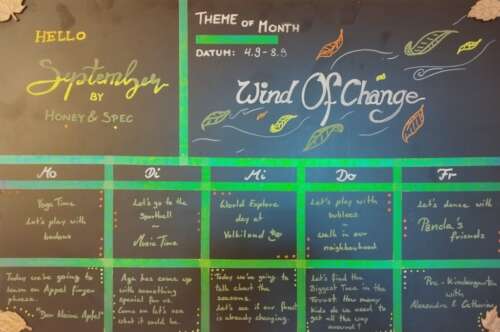 HELLO
September
BY
HONEY & SPEC
THEME OF MONTH
DATUM: 4.9-8.9
Wind Of Change
Mo
Di
Mi
Do
Fr
Yoga Time
Let's play with
Let's go to the
Sporthall
~
Music Time
World Explore
day at
Volkiland
Let's play with
~
walk in our
neighbourhood
Let's dance with
Panda's
friends
Today we're going
to learn an Appel finger
phrase.
"Der kleine Apfel"
Aga has come up
with something
special for us.
Come on let's see
what it could be.
Today we're going to
talk about the
seasons.
Let's see if our forest
is already changing.
Let's find the
Biggest Tree in the
Forest. How many
kids do we need to
get all the way
around?
Pre-Kindergarten
with
Alexandra & Catharina